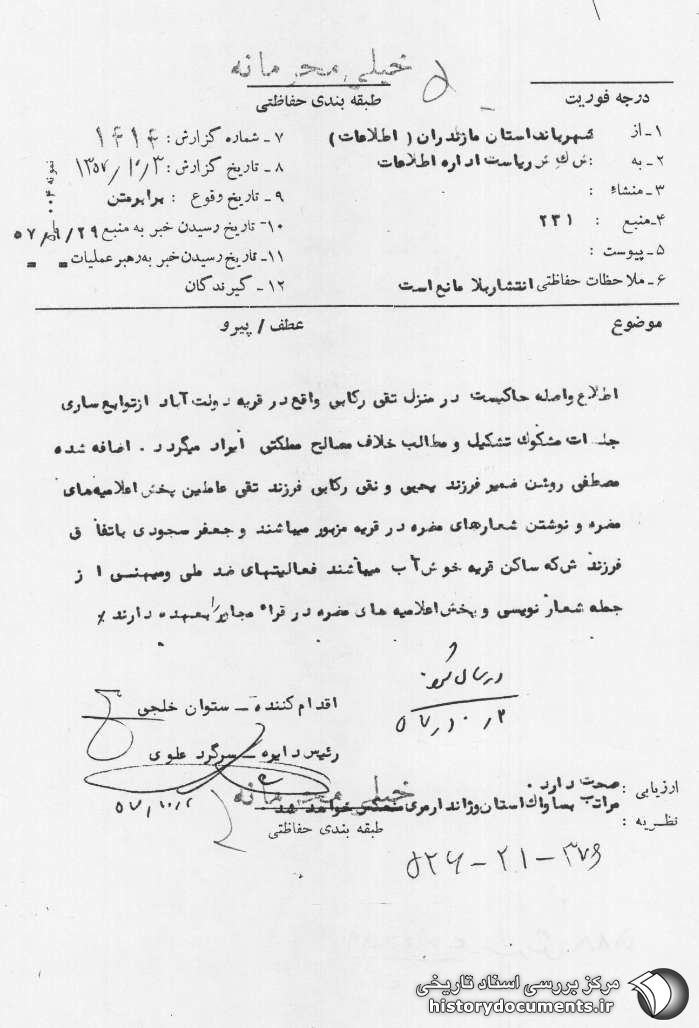 خیلی محرمانه
طبقه بندی حفاظتی
درجه فوریت
۱ـ از شهربانی استان مازندران (اطلاعات)
۲ـ به : ش ک ش ریاست اداره اطلاعات
۳ـ منشاء :
۴ـ منبع : ۲۳۱
۵ـ پیوست :
۶ـ ملاحظات حفاظتی انتشار بلا مانع است
۷ـ شماره گزارش :
۸ـ تاریخ گزارش : ۱۳۵۷/۱۰/۳
۹ـ تاریخ وقوع : برابر متن
۱۰ـ تاریخ رسیدن خبر به منبع ۵۷/۹/۲۹
۱۱ـ تاریخ رسیدن خبر به رهبر عملیات " "
۱۲ـ گیرندگان
نمونه ۰۰۴
موضوع
عطف / پیرو
اطلاع واصله حاکیست در منزل تقی رکابی واقع در قریه دولت آباد از توابع ساری
جلسات مشکوک تشکیل و مطالب خلاف مصالح مملکتی ایراد میگردد . اضافه شده
مصطفی روشن ضمیر فرزند یحیی و نقی رکابی فرزند تقی عاملین پخش اعلامیه‌های
مضره و نوشتن شعارهای مضره در قریه مزبور میباشند و جعفر سجودی باتفاق
فرزندش که ساکن قریه خوش آب میباشند فعالیتهای ضد ملی و میهنی از
جمله شعار نویسی و پخش اعلامیه های مضره در قراء مجاور را بعهده دارند ٪
ارسال شود
۵۷٫۱۰٫۳
اقدام کننده ـ ستوان خلجی
رئیس دایره ـ سرگرد علوی
۵۷٫۱۰٫۲
ارزیابی : صحت دارد .
نظریه : مراتب بساواک استان و ژاندارمری منعکس خواهد شد
خیلی محرمانه
طبقه بندی حفاظتی
۵۲۶-۲۱-۳۷۶
مرکز بررسی اسناد تاریخی
historydocuments.ir